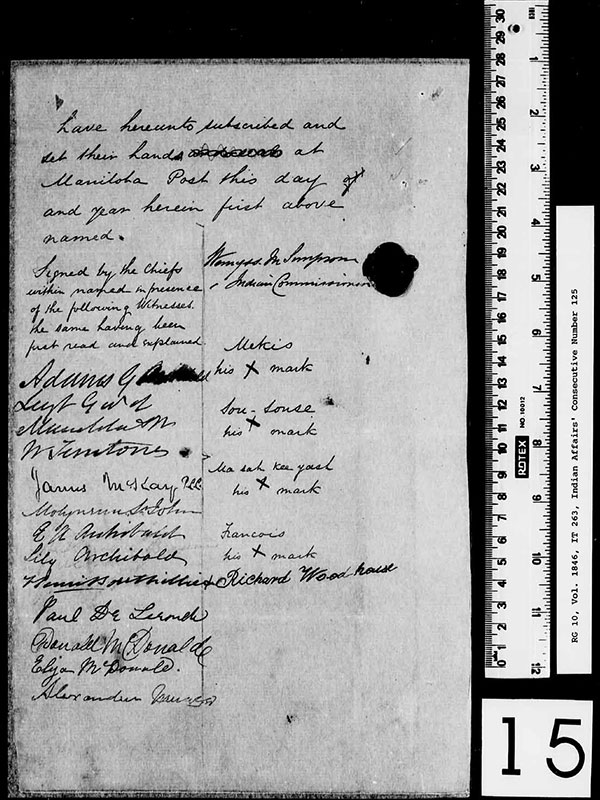 have hereunto subscribed and
set their hands at
Manitoba Post this day of
and year herein first above
named.
Signed by the Chiefs
within named in presence
of the following Witnesses.
the same having been
first read and explained
Adams G
Lieut Govr of
Manitoba
James McKay P.L.C.
Molyneux St John
E A Archibald
Lily Archibald
Henri Bouthillier
Paul De Laronde
Donald McDonald
Eliza McDonald.
Alexander
Wemyss M Simpson
Indian Commissioner
Mekis
his X mark
Sou-sonse
his X mark
Ma sah kee yash
his X mark
Francois
his X mark
Richard Woodhouse
ROTEX
NO 10012
0 1 2 3 4 5 6 7 8 9 10 11 12 13 14 15 16 17 18 19 20 21 22 23 24 25 26 27 28 29 30
1 2 3 4 5 6 7 8 9 10 11 12
RG 10, Vol. 1846, IT 263, Indian Affairs' Consecutive Number 125
15